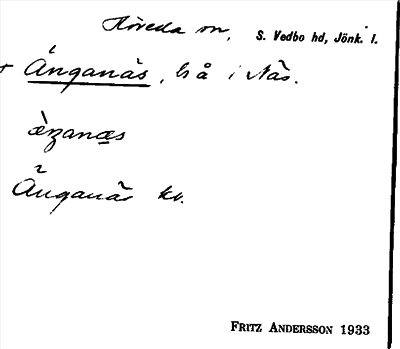 Höreda sn, S. Vedbo hd, Jönk. l.
+ Änganäs, hå i Näs.
Änganäs kv.
FRITZ ANDERSSON 1933